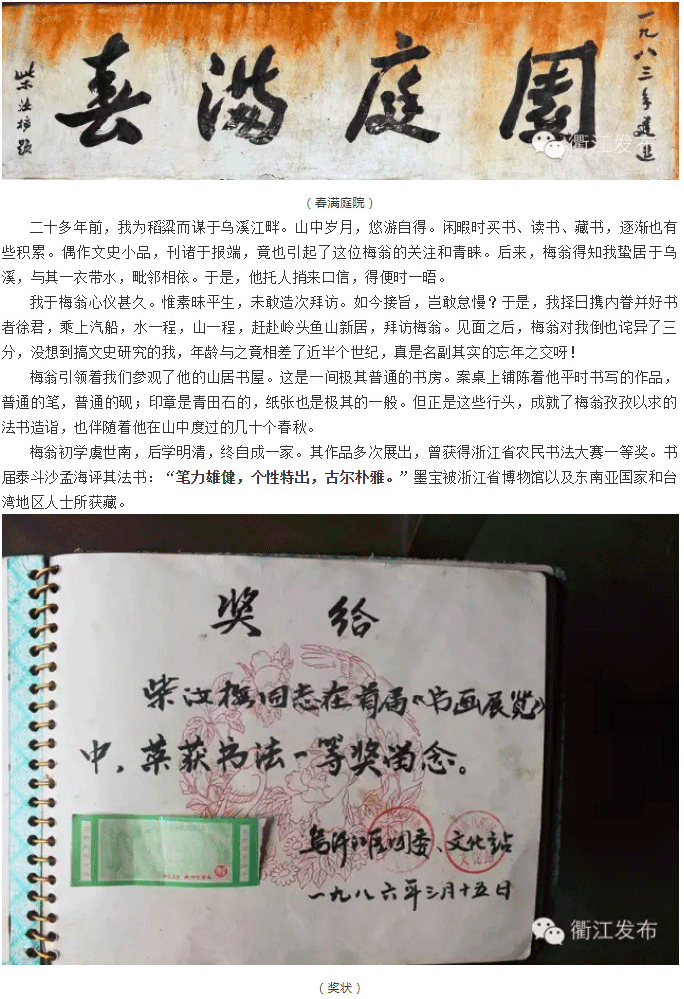 春满庭園
一九八三年
衢江发布
（春满庭院）
二十多年前，我为稻粱而谋于乌溪江畔。山中岁月，悠游自得。闲暇时买书、读书、藏书，逐渐也有
些积累。偶作文史小品，刊诸于报端，竟也引起了这位梅翁的关注和青睐。后来，梅翁得知我蛰居于乌
溪，与其一衣带水，毗邻相依。于是，他托人捎来口信，得便时一晤。
我于梅翁心仪甚久。惟素昧平生，未敢造次拜访。如今接旨，岂敢怠慢？于是，我择日携内眷并好书
者徐君，乘上汽船，水一程，山一程，赶赴岭头鱼山新居，拜访梅翁。见面之后，梅翁对我倒也诧异了三
分，没想到搞文史研究的我，年龄与之竟相差了近半个世纪，真是名副其实的忘年之交呀！
梅翁引领着我们参观了他的山居书屋。这是一间极其普通的书房。案桌上铺陈着他平时书写的作品，
普通的笔，普通的砚；印章是青田石的，纸张也是极其的一般。但正是这些行头，成就了梅翁孜孜以求的
法书造诣，也伴随着他在山中度过的几十个春秋。
梅翁初学虞世南，后学明清，终自成一家。其作品多次展出，曾获得浙江省农民书法大赛一等奖。书
届泰斗沙孟海评其法书：“笔力雄健，个性特出，古尔朴雅。”墨宝被浙江省博物馆以及东南亚国家和台
湾地区人士所获藏。
奖给
柴汝梅同志在首届《书画展览》
中，荣获书法一等奖留念。
团委、文化站
一九八六年三月十五日
衢江发布
（奖状）